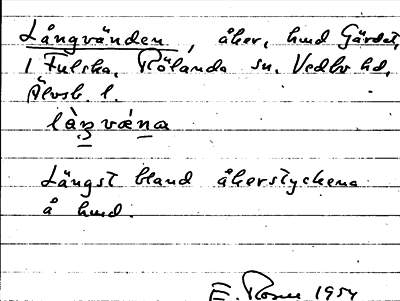 Långvänden, åker, hmd Gärdet,
i Fulska, Rölanda sn, Vedbo hd,
Älvsb. l.
làŋ væ̀na
Längst bland åkerstyckena
å hmd.
E. 1954